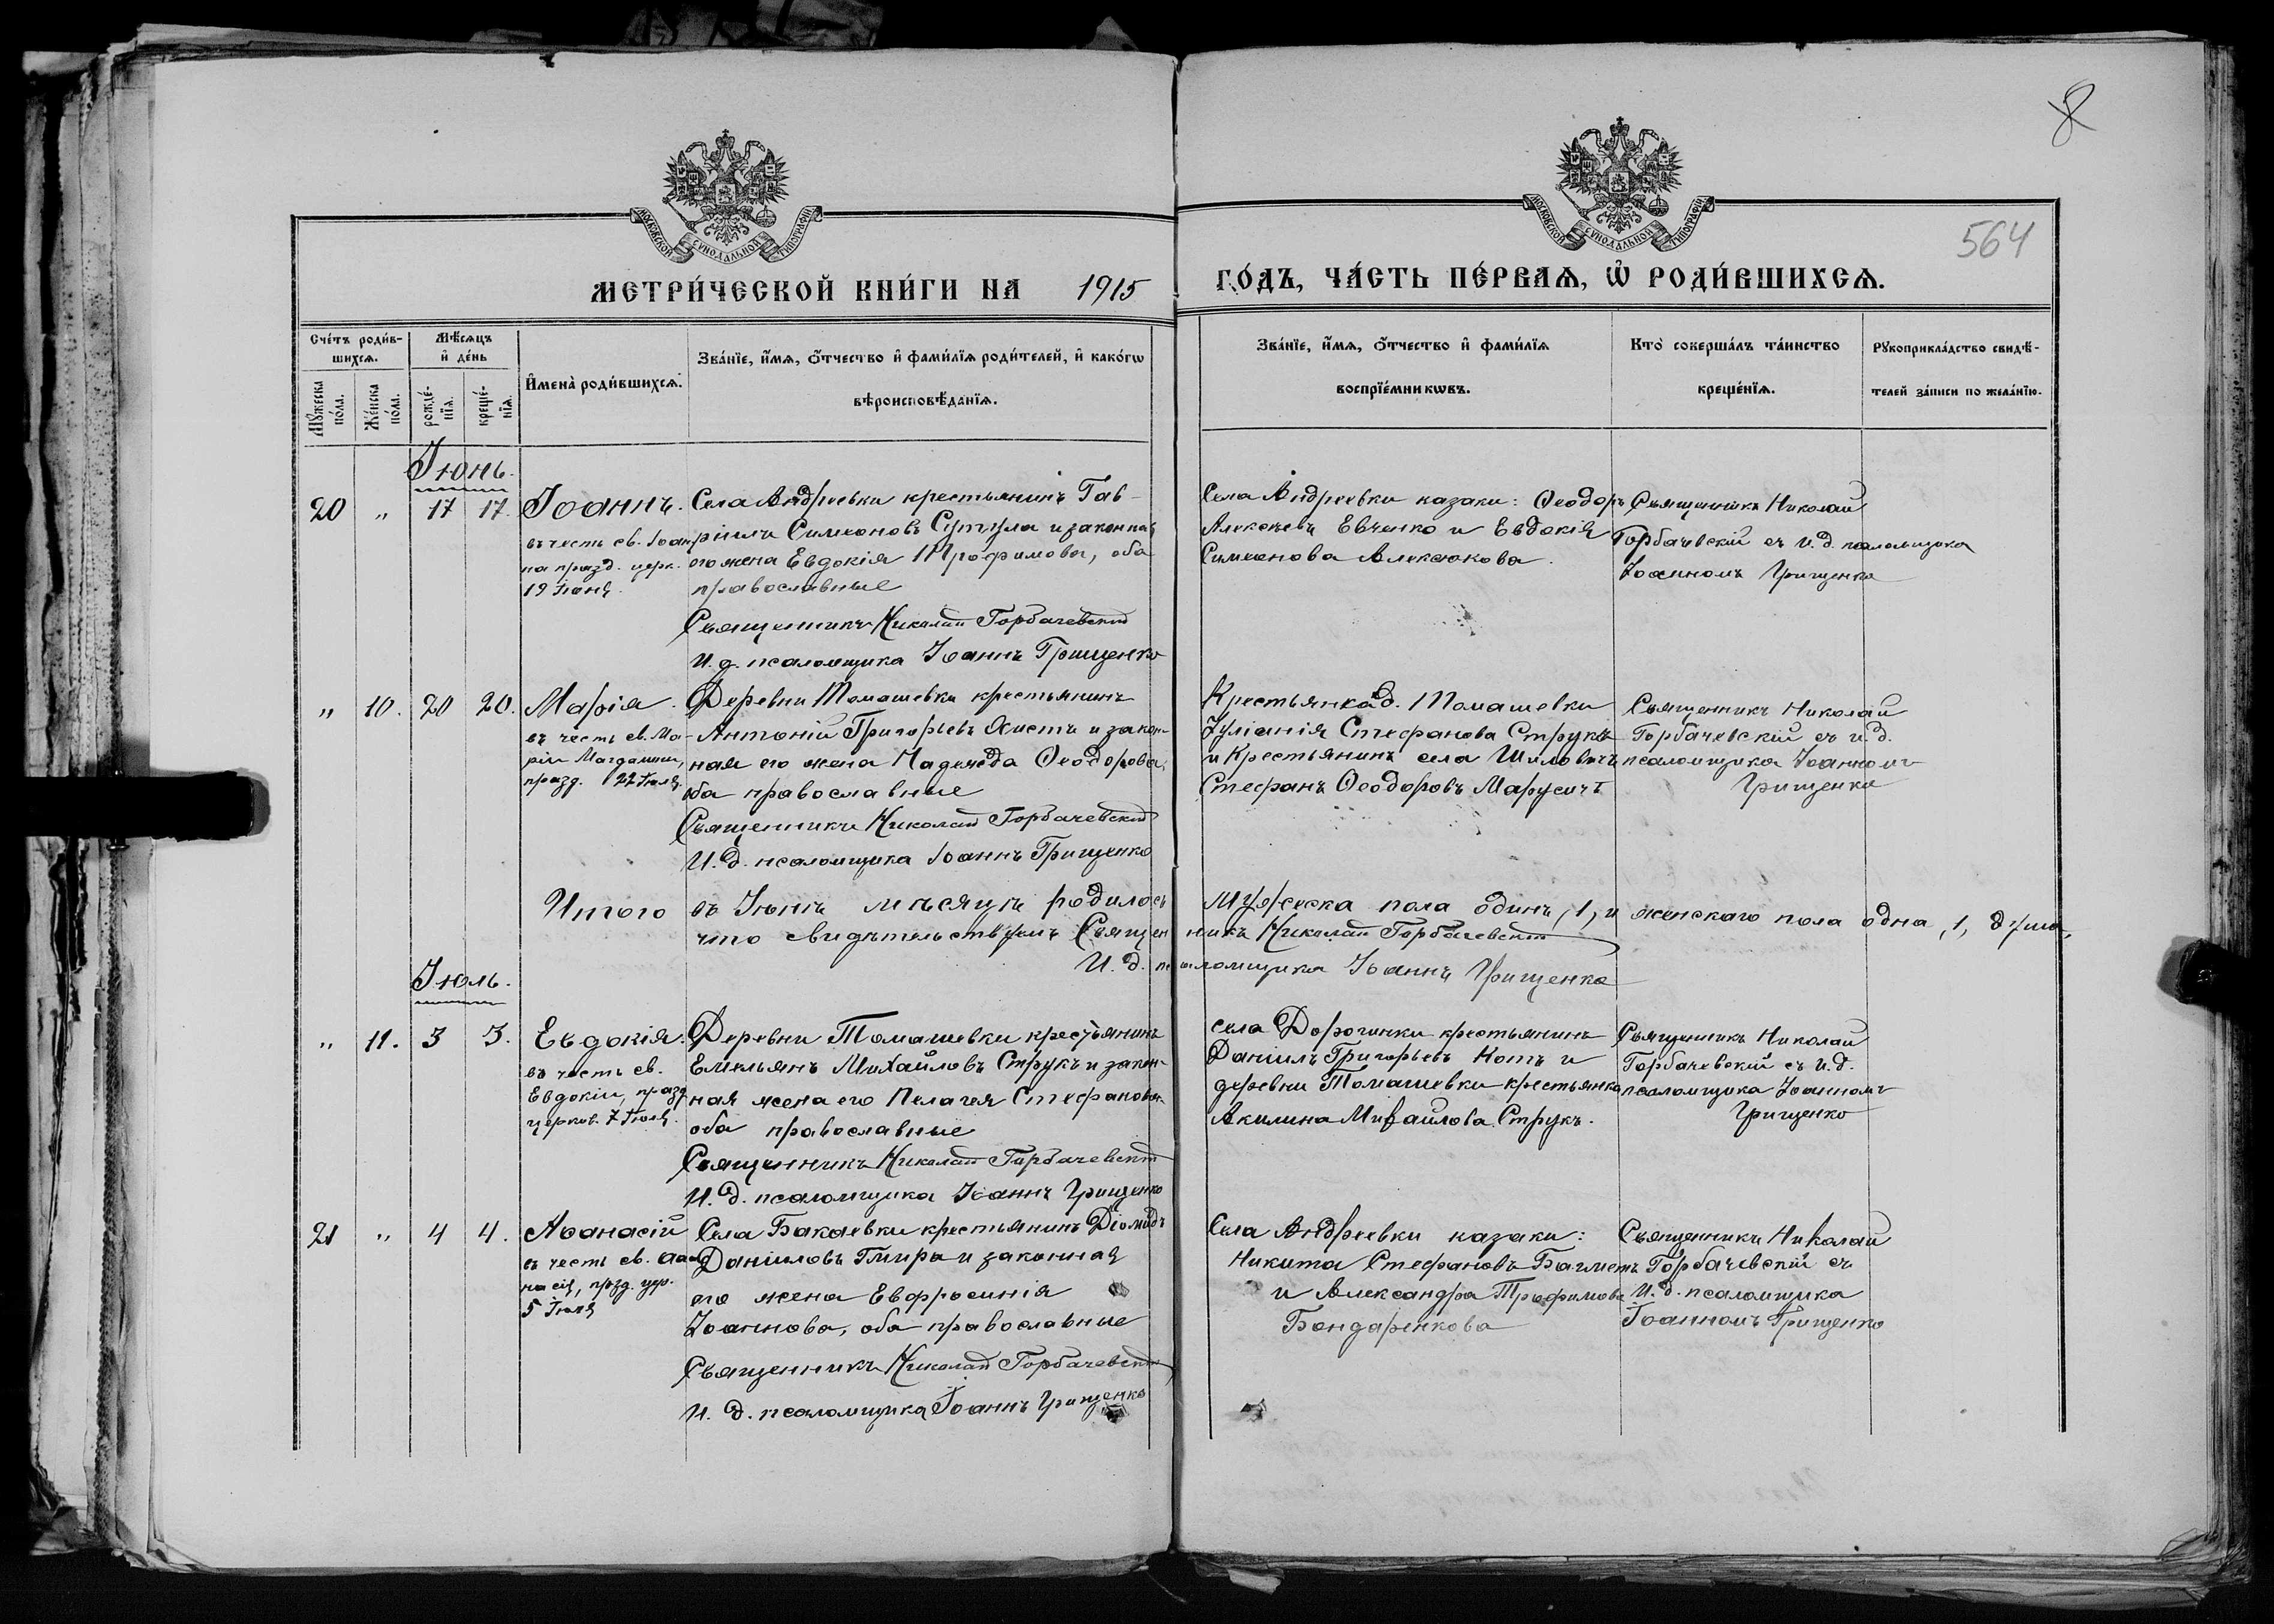 8
564
МОСКОВСКОЙ СУНОДАЛЬНОЙ ТИПОГРАФІИ
МОСКОВСКОЙ СУНОДАЛЬНОЙ ТИПОГРАФІИ
МЕТРИ́ЧЕСКОЙ КНИ́ГИ НА 1915 ГО́ДЪ, ЧА́СТЬ ПЕ́РВАѦ, Ѡ҆ РОДИ́ВШИХСѦ.
Сче́тъ роди́в-
шихсѧ.
Мꙋ́жеска
по́ла.
Же́нска
по́ла.
Мѣ́сѧцъ
и҆ де́нь
рожде́-
нїѧ.
креще́-
нїѧ.
И҆мена̀ роди́вшихсѧ.
Зва́нїе, и҆́мѧ, ѻ҆́тчество и҆ фами́лїѧ роди́телей, и҆ како́гѡ
вѣроисповѣ́данїѧ.
Зва́нїе, и҆́мѧ, ѻ҆́тчество и҆ фами́лїѧ
воспрїе́мникѡвъ.
Кто̀ соверша́лъ та́инство
креще́нїѧ.
Рꙋкоприкла́дство свидѣ́-
телей за́писи по жела́нїю.
Іюнь.
20 " 17 17.
Іоаннъ.
въ честь св. Іоан.
на празд. церк.
19 Іюня.
Села Андреевки крестьянинъ Гав-
ріилъ Симеоновъ Сутула и законная
его жена Евдокія Трофимова, оба
православные
Священникъ Николай Горбачевскій
И. д. псаломщика Іоаннъ Грищенко
Села Андреевки казаки: Ѳеодоръ
Алексѣевъ Евченко и Евдокія
Симеонова Алексюкова.
Священникъ Николай
Горбачевскій съ и. д. псаломщика
Іоанномъ Грищенко
" 10. 20 20.
Марія.
въ честь св. Ма-
ріи Магдалины,
празд. 22 Іюля.
Деревни Томашевки крестьянинъ
Антоній Григорьевъ Хистъ и закон-
ная его жена Надежда Ѳеодорова,
оба православные
Священникъ Николай Горбачевскій
И. д. псаломщика Іоаннъ Грищенко
Крестьянка д. Томашевки
Іуліанія Стефанова Струкъ
и Крестьянинъ села Шиловичъ
Стефанъ Ѳеодоровъ Марусичъ
Священникъ Николай
Горбачевскій съ и. д.
псаломщика Іоанномъ
Грищенко
Итого въ Іюнѣ мѣсяцѣ родилось мужеска пола одинъ, 1, и женскаго пола одна, 1, душа,
что свидѣтельствуемъ Священникъ Николай Горбачевскій
И. д. псаломщика Іоаннъ Грищенко
Іюль.
" 11. 3 3.
Евдокія.
въ честь св.
Евдокіи, празд.
церков. 7 Іюля.
Деревни Томашевки крестьянинъ
Емельянъ Михайловъ Струкъ и закон-
ная жена его Пелагея Стефанова
оба православные
Священникъ Николай Горбачевскій
И. д. псаломщика Іоаннъ Грищенко
села Дорогинки крестьянинъ
Даніилъ Григорьевъ Котъ и
деревни Томашевки крестьянка
Акилина Михайлова Струкъ.
Священникъ Николай
Горбачевскій съ и. д.
псаломщика Іоанномъ
Грищенко
21 " 4 4.
Аѳанасій
въ честь св. Аѳа-
насія, празд. цер.
5 Іюля
Села Бакаевки крестьянинъ Діомидъ
Даніиловъ Гмира и законная
его жена Евфросинія
Іоаннова, оба православные
Священникъ Николай Горбачевскій
И. д. псаломщика Іоаннъ Грищенко
Села Андреевки казаки:
Никита Стефановъ Багметъ
и Александра Трофимова
Бондаренкова
Священникъ Николай
Горбачевскій съ
И. д. псаломщика
Іоанномъ Грищенко